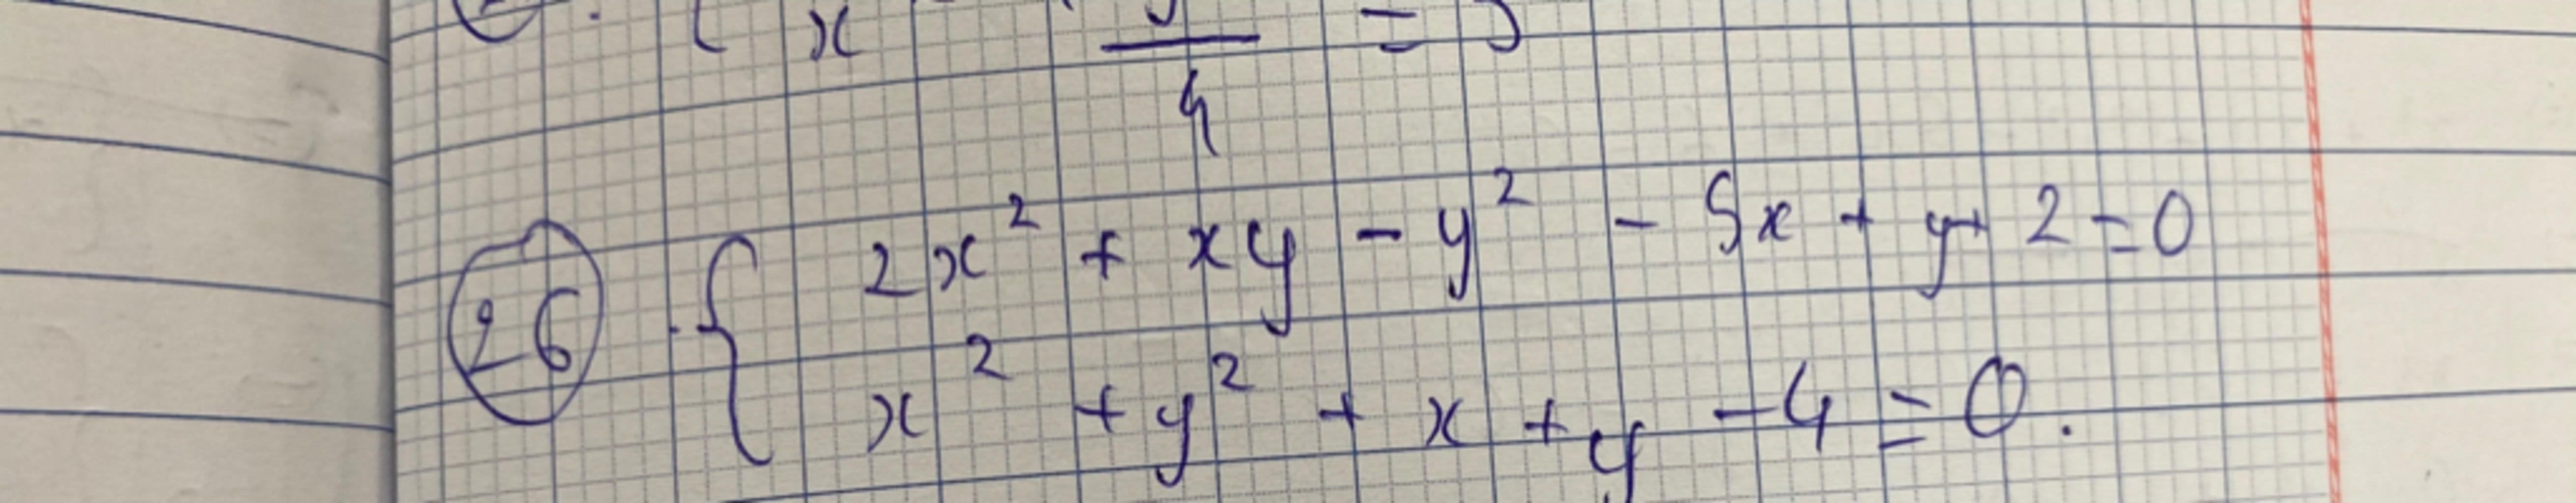 { x
―
4
= 5
26 . { 2x² + xy - y² - 5x + y + 2 = 0
x² + y² + x + y - 4 = 0.